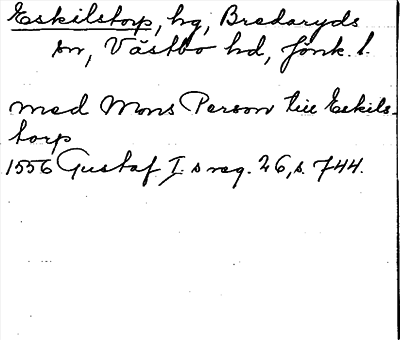 Eskilstorp, hg, Bredaryds
sn, Västbo hd, Jönk. l.
med Mons Person till Eskils-
torp
1556 Gustaf I s reg. 26, s. 744.